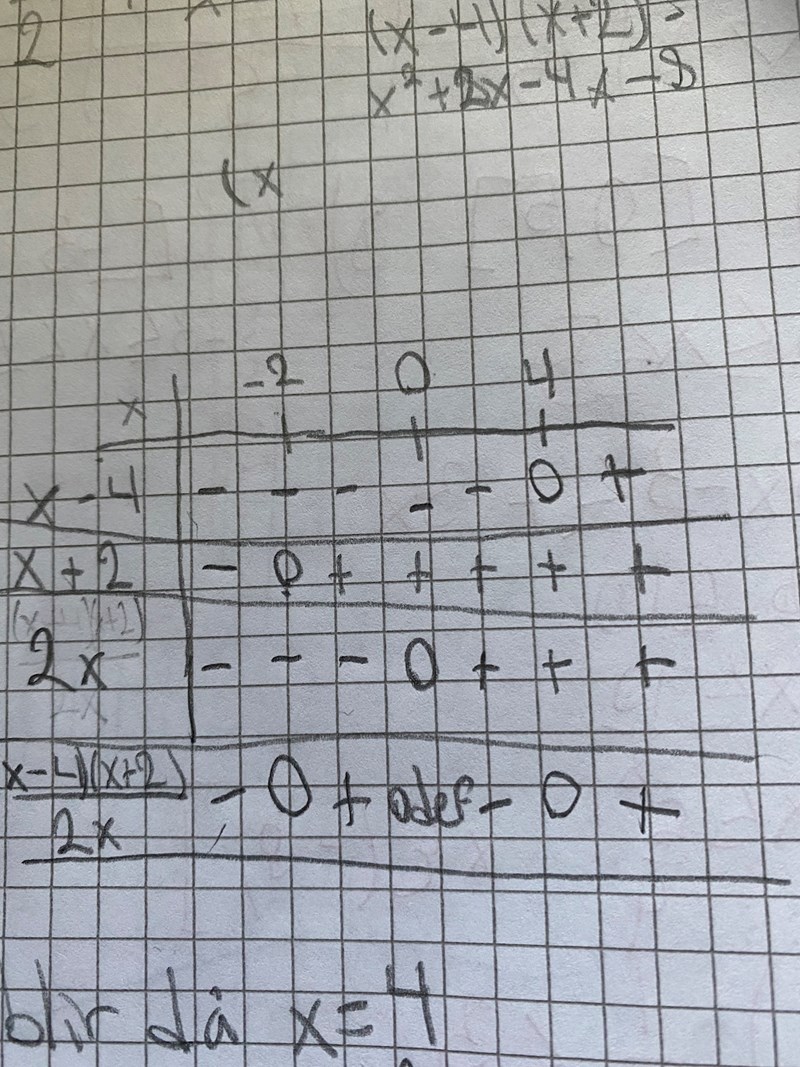 2
(x-4)(x+2)=
x²+2x-4x-8
(x
-2 0 4
x
x-4 - - - - - 0 +
x+2 - 0 + + + + +
2x - - - 0 + + +
x-4)(x+2) - 0 + odef - 0 +
2x
blir då x=4